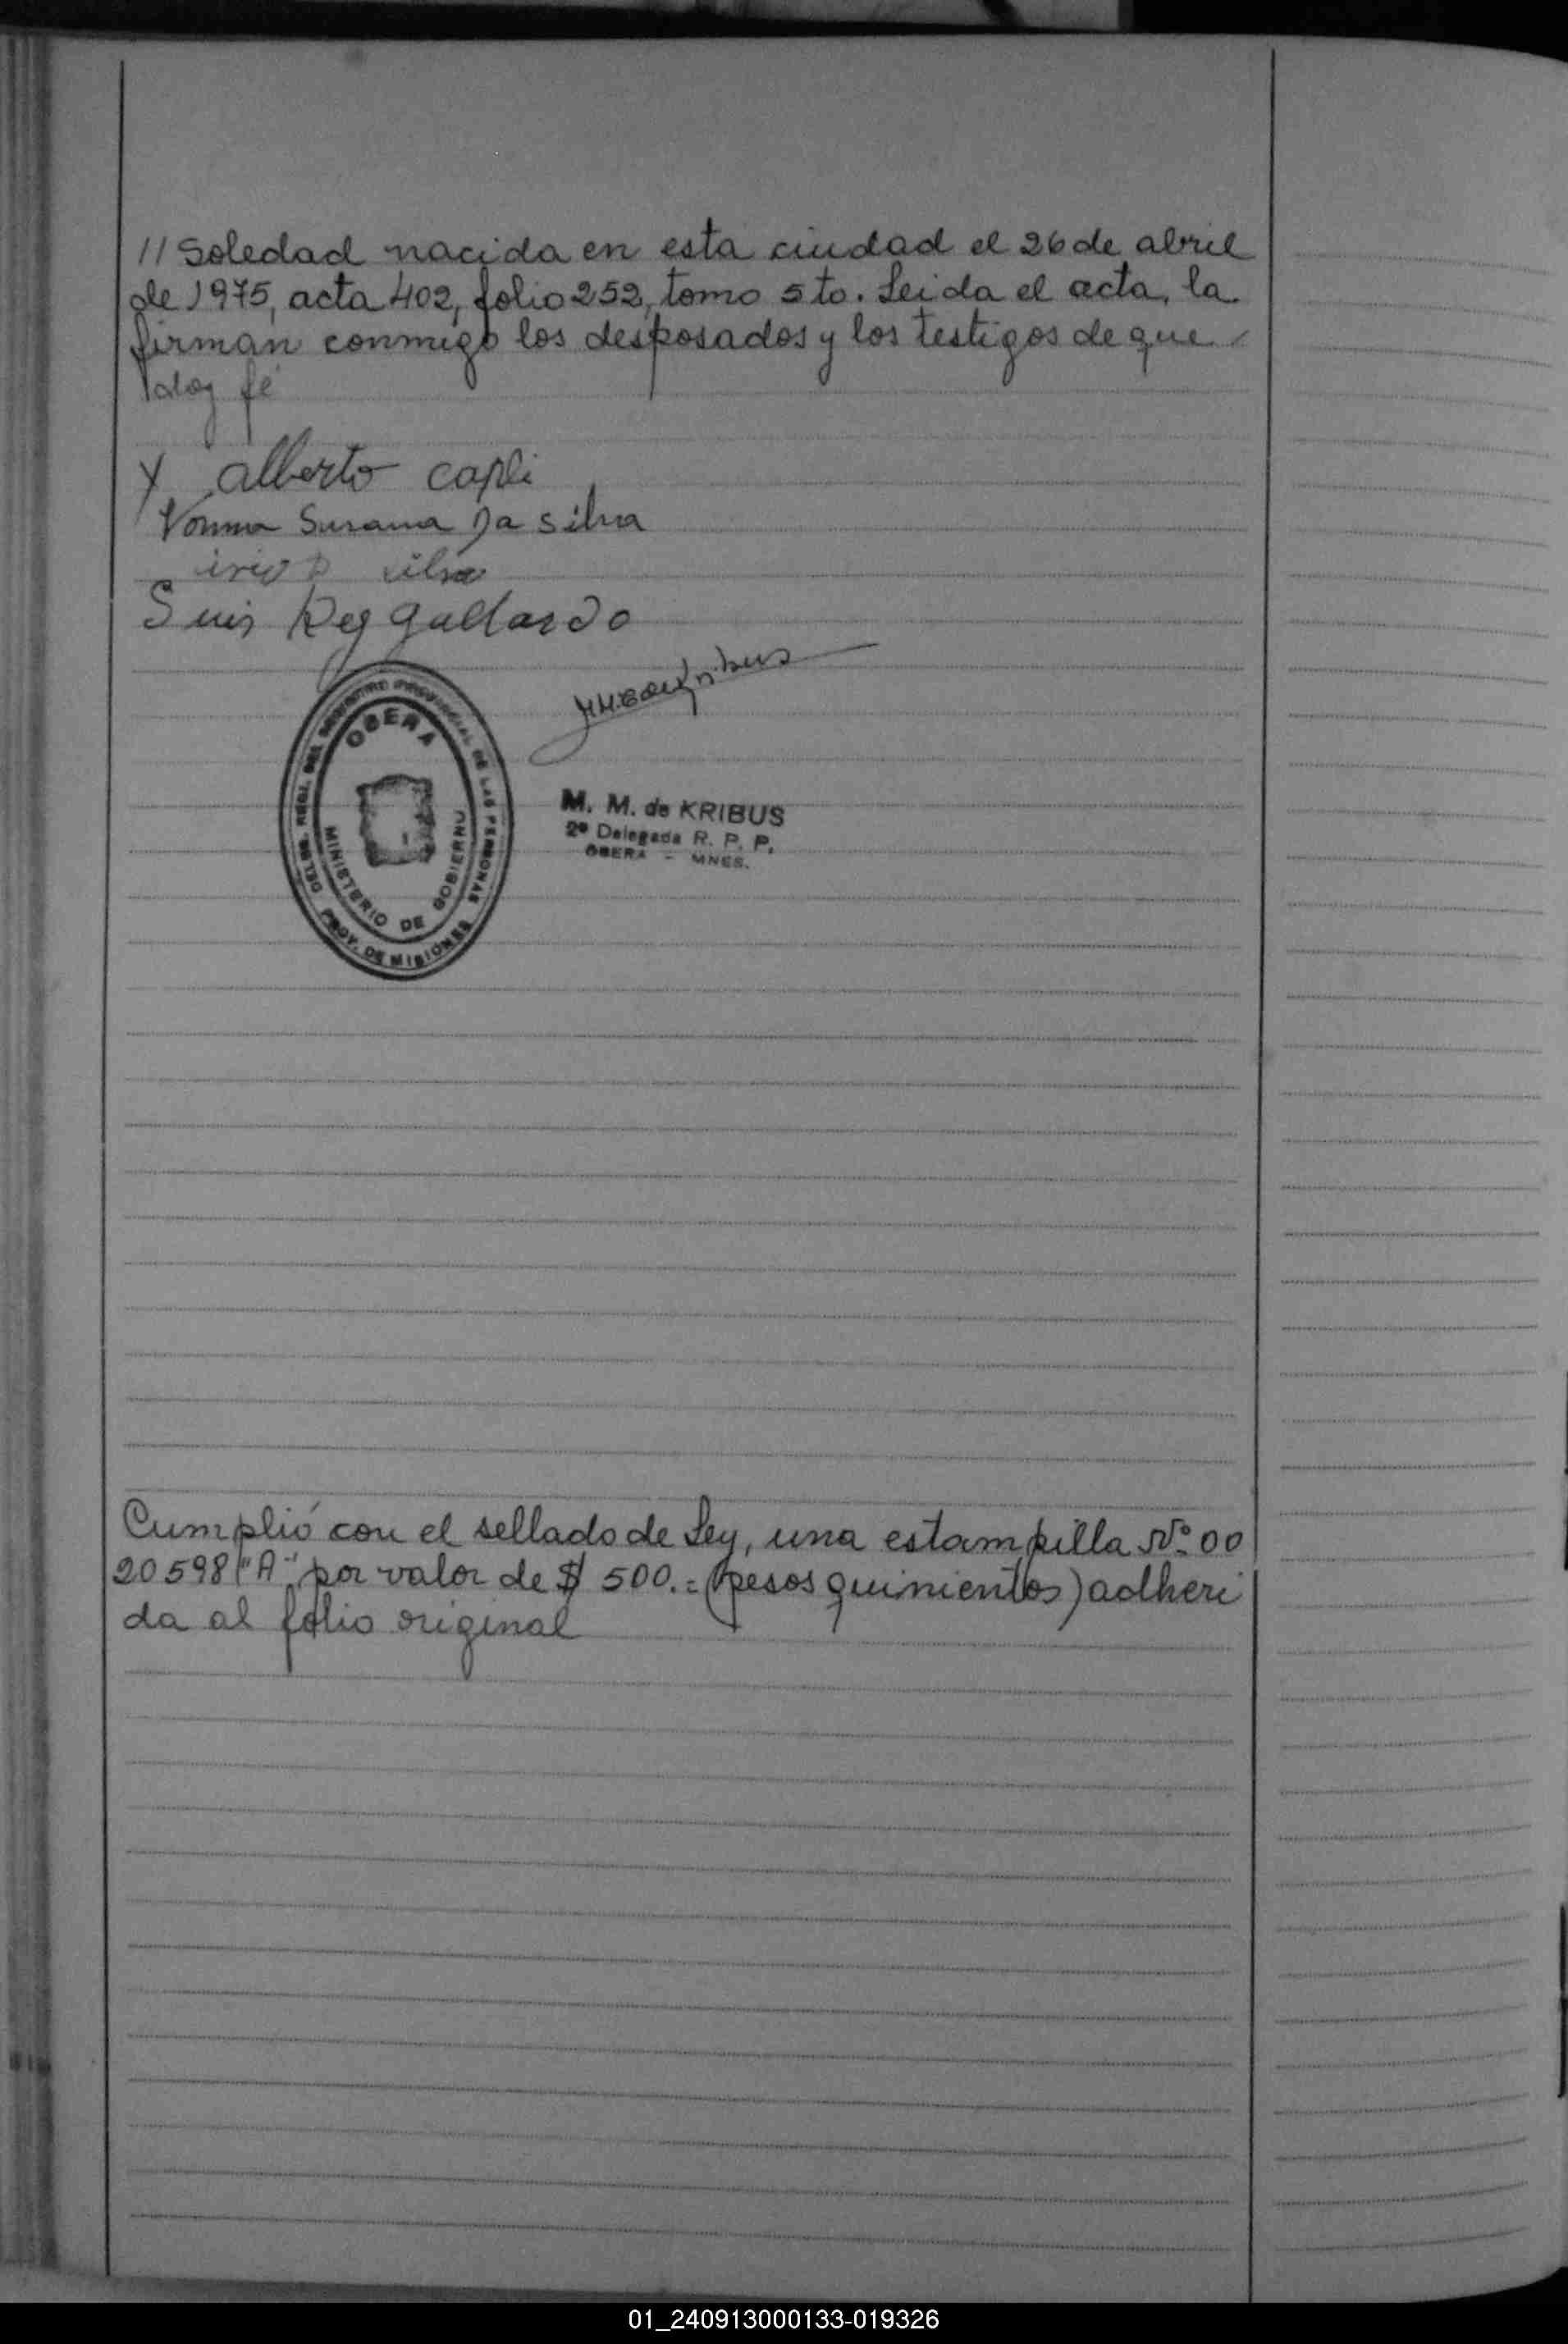 // Soledad nacida en esta ciudad el 26 de abril
de 1975, acta 402, folio 252, tomo 5to. Leida el acta, la
firman conmigo los desposados y los testigos de que
doy fé
alberto capli
Norma Susana Da silva
silva
Luis Rey gallardo
OBERA
DELEG. REGI. DEL REGISTRO PROVINCIAL DE LAS PERSONAS
MINISTERIO DE GOBIERNO
PROV. DE MISIONES
M. M. de KRIBUS
2º Delegada R. P. P.
OBERA - MNES.
Cumplió con el sellado de Ley, una estampilla Nº 00
20598 "A" por valor de $ 500.= (pesos quinientos) adheri
da al folio original
01_240913000133-019326